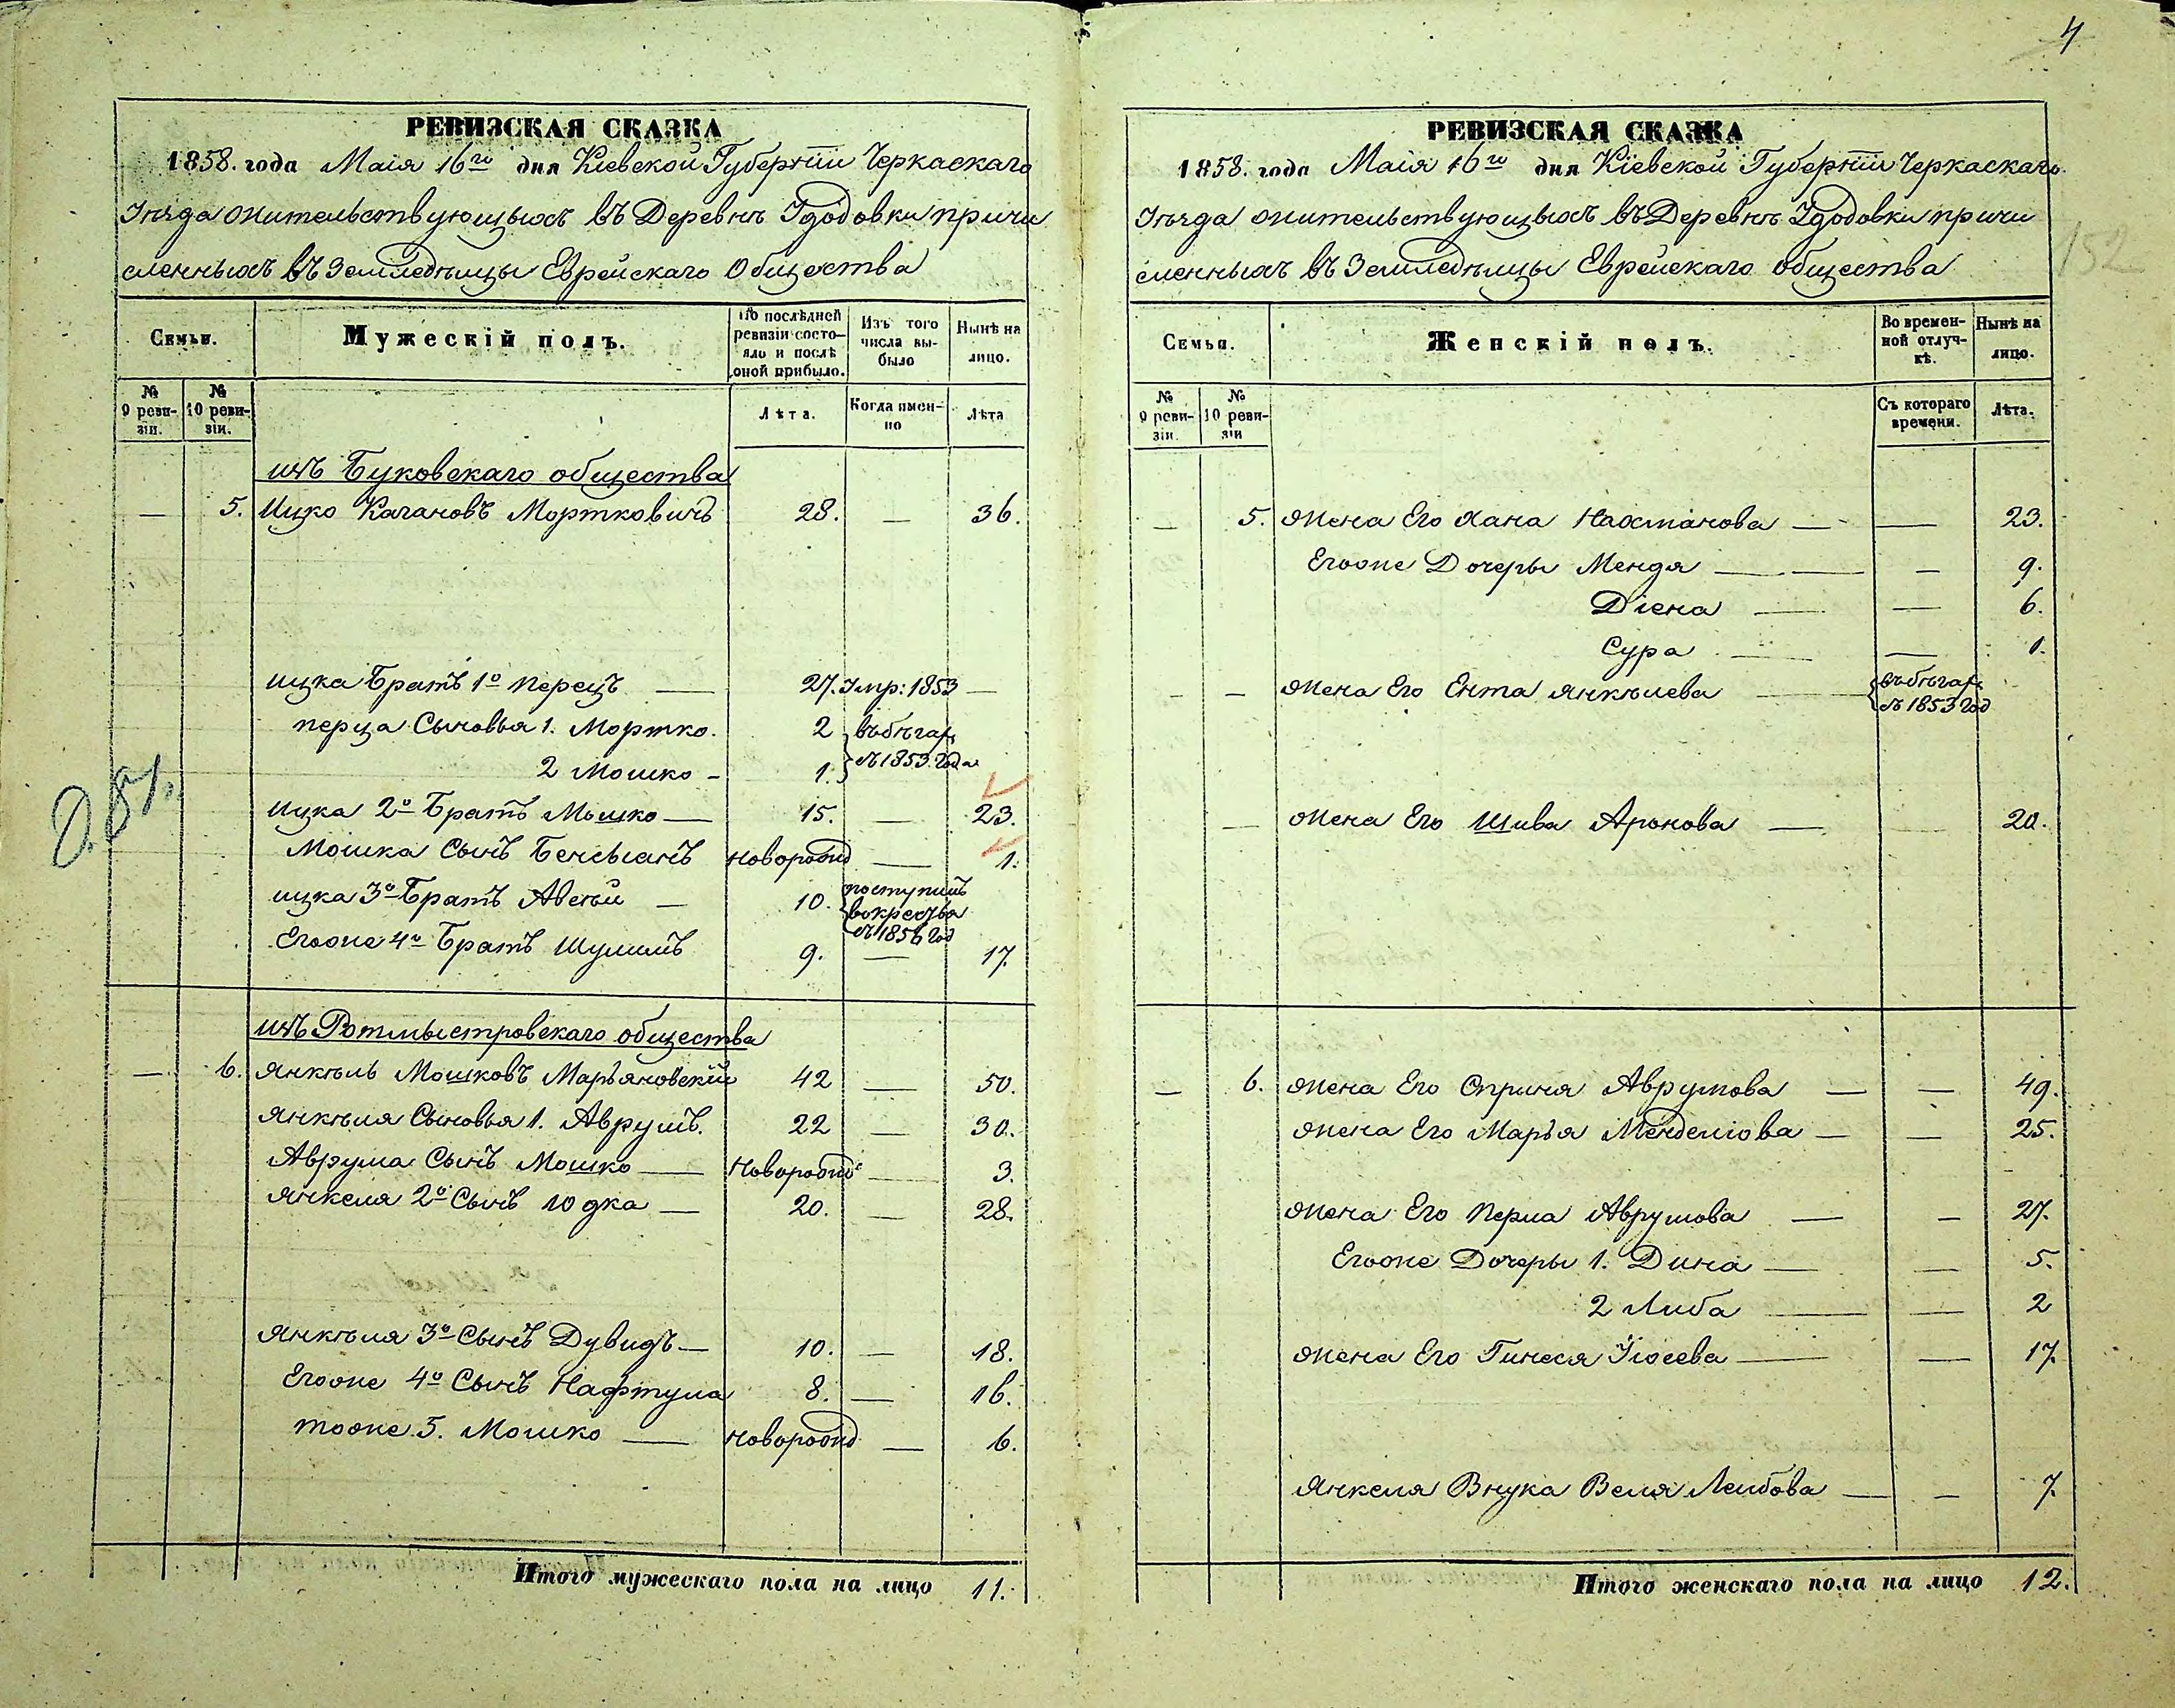 4
152
РЕВИЗСКАЯ СКАЗКА
1858. года Маія 16го дня Кіевской Губерніи Черкаскаго
Уѣзда жительствующыхъ въ Деревнѣ Здодовки причи
сленныхъ въ Земледѣлцы Еврейскаго Общества
Семьи.
Мужескій полъ.
По послѣдней ревизіи состояло и послѣ оной прибыло.
Изъ того числа выбыло
Нынѣ на лицо.
№ 9 ревизіи.
№ 10 ревизіи.
Лѣта.
Когда именно
Лѣта
изъ Буковскаго общества
— 5. Ицко Кагановъ Мортковичъ 28. — 36.
ицка Братъ 1й Перецъ — 27. Умр: 1853 —
перца Сыновья 1. Мортко. 2 въ бѣгах
2 Мошко - 1. съ 1853 года
ицка 2й Братъ Мошко — 15. — 23.
Мошка Сынъ Бенсыанъ новорожд — 1.
ицка 3й Братъ Авсѣй — 10. поступилъ
в рекруты
съ 1856 год
Егоже 4й Братъ Шулимъ 9. — 17.
изъ Ротмыстровскаго общества
— 6. Янкѣль Мошковъ Марьяновскій 42 — 50.
Янкѣля Сыновья 1. Аврумъ. 22 — 30.
Аврума Сынъ Мошко — Новорожд — 3.
Янкеля 2й Сынъ Юдка — 20. — 28.
Янкѣля 3й Сынъ Дувидъ — 10. — 18.
Егоже 4й Сынъ Нафтула 8. — 16.
тоже 5. Мошко — новорожд — 6.
Итого мужескаго пола на лицо 11.
РЕВИЗСКАЯ СКАЗКА
1858. года Маія 16го дня Кіевской Губерніи Черкаскаго
Уѣзда жительствующыхъ въ Деревнѣ Здодовки причи
сленныхъ въ Земледѣлцы Еврейскаго общества
Семьи.
Женскій полъ.
Во временной отлучкѣ.
Нынѣ на лицо.
№ 9 ревизіи.
№ 10 ревизіи
Съ котораго времени.
Лѣта.
— 5. жена Его Хана Нахманова — — 23.
Егоже Дочеры Мендя — — 9.
Діена — — 6.
Сура — — 1.
- — жена Его Ента Янкѣлева — въ бѣгах
съ 1853 год
— жена Его Шива Аронова — 20.
— 6. жена Его Сприня Аврумова — — 49.
жена Его Марья Менделіова — — 25.
жена Его Перла Аврумова — — 27.
Егоже Дочеры 1. Дина — — 5.
2 Либа — — 2
жена Его Гинеся Іосева — — 17.
Янкеля Внука Веля Лейбова — — 7.
Итого женскаго пола на лицо 12.